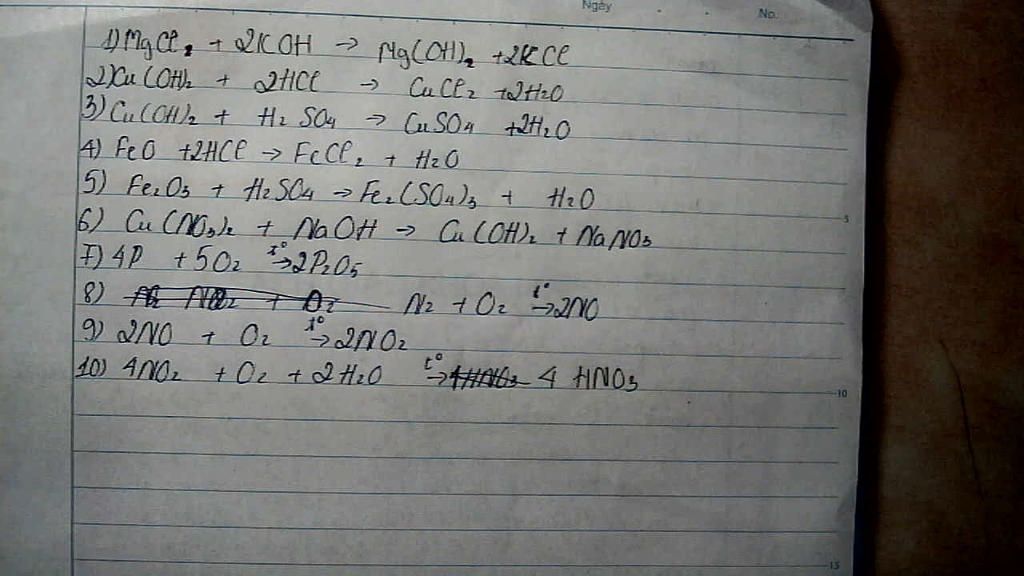 Ngày No.
1) MgCl₂ + 2KOH → Mg(OH)₂ + 2KCl
2) Cu(OH)₂ + 2HCl → CuCl₂ + 2H₂O
3) Cu(OH)₂ + H₂SO₄ → CuSO₄ + 2H₂O
4) FeO + 2HCl → FeCl₂ + H₂O
5) Fe₂O₃ + H₂SO₄ → Fe₂(SO₄)₃ + H₂O
5
6) Cu(NO₃)₂ + NaOH → Cu(OH)₂ + NaNO₃
7) 4P + 5O₂ t° → 2P₂O₅
8) N₂ + O₂ t° → 2NO
9) 2NO + O₂ t° → 2NO₂
10) 4NO₂ + O₂ + 2H₂O t° → 4 HNO₃
10
15